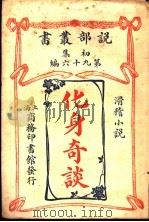 說部叢書
初集
第九十六編
滑稽小說
化身奇談
上海
商務印書館發行